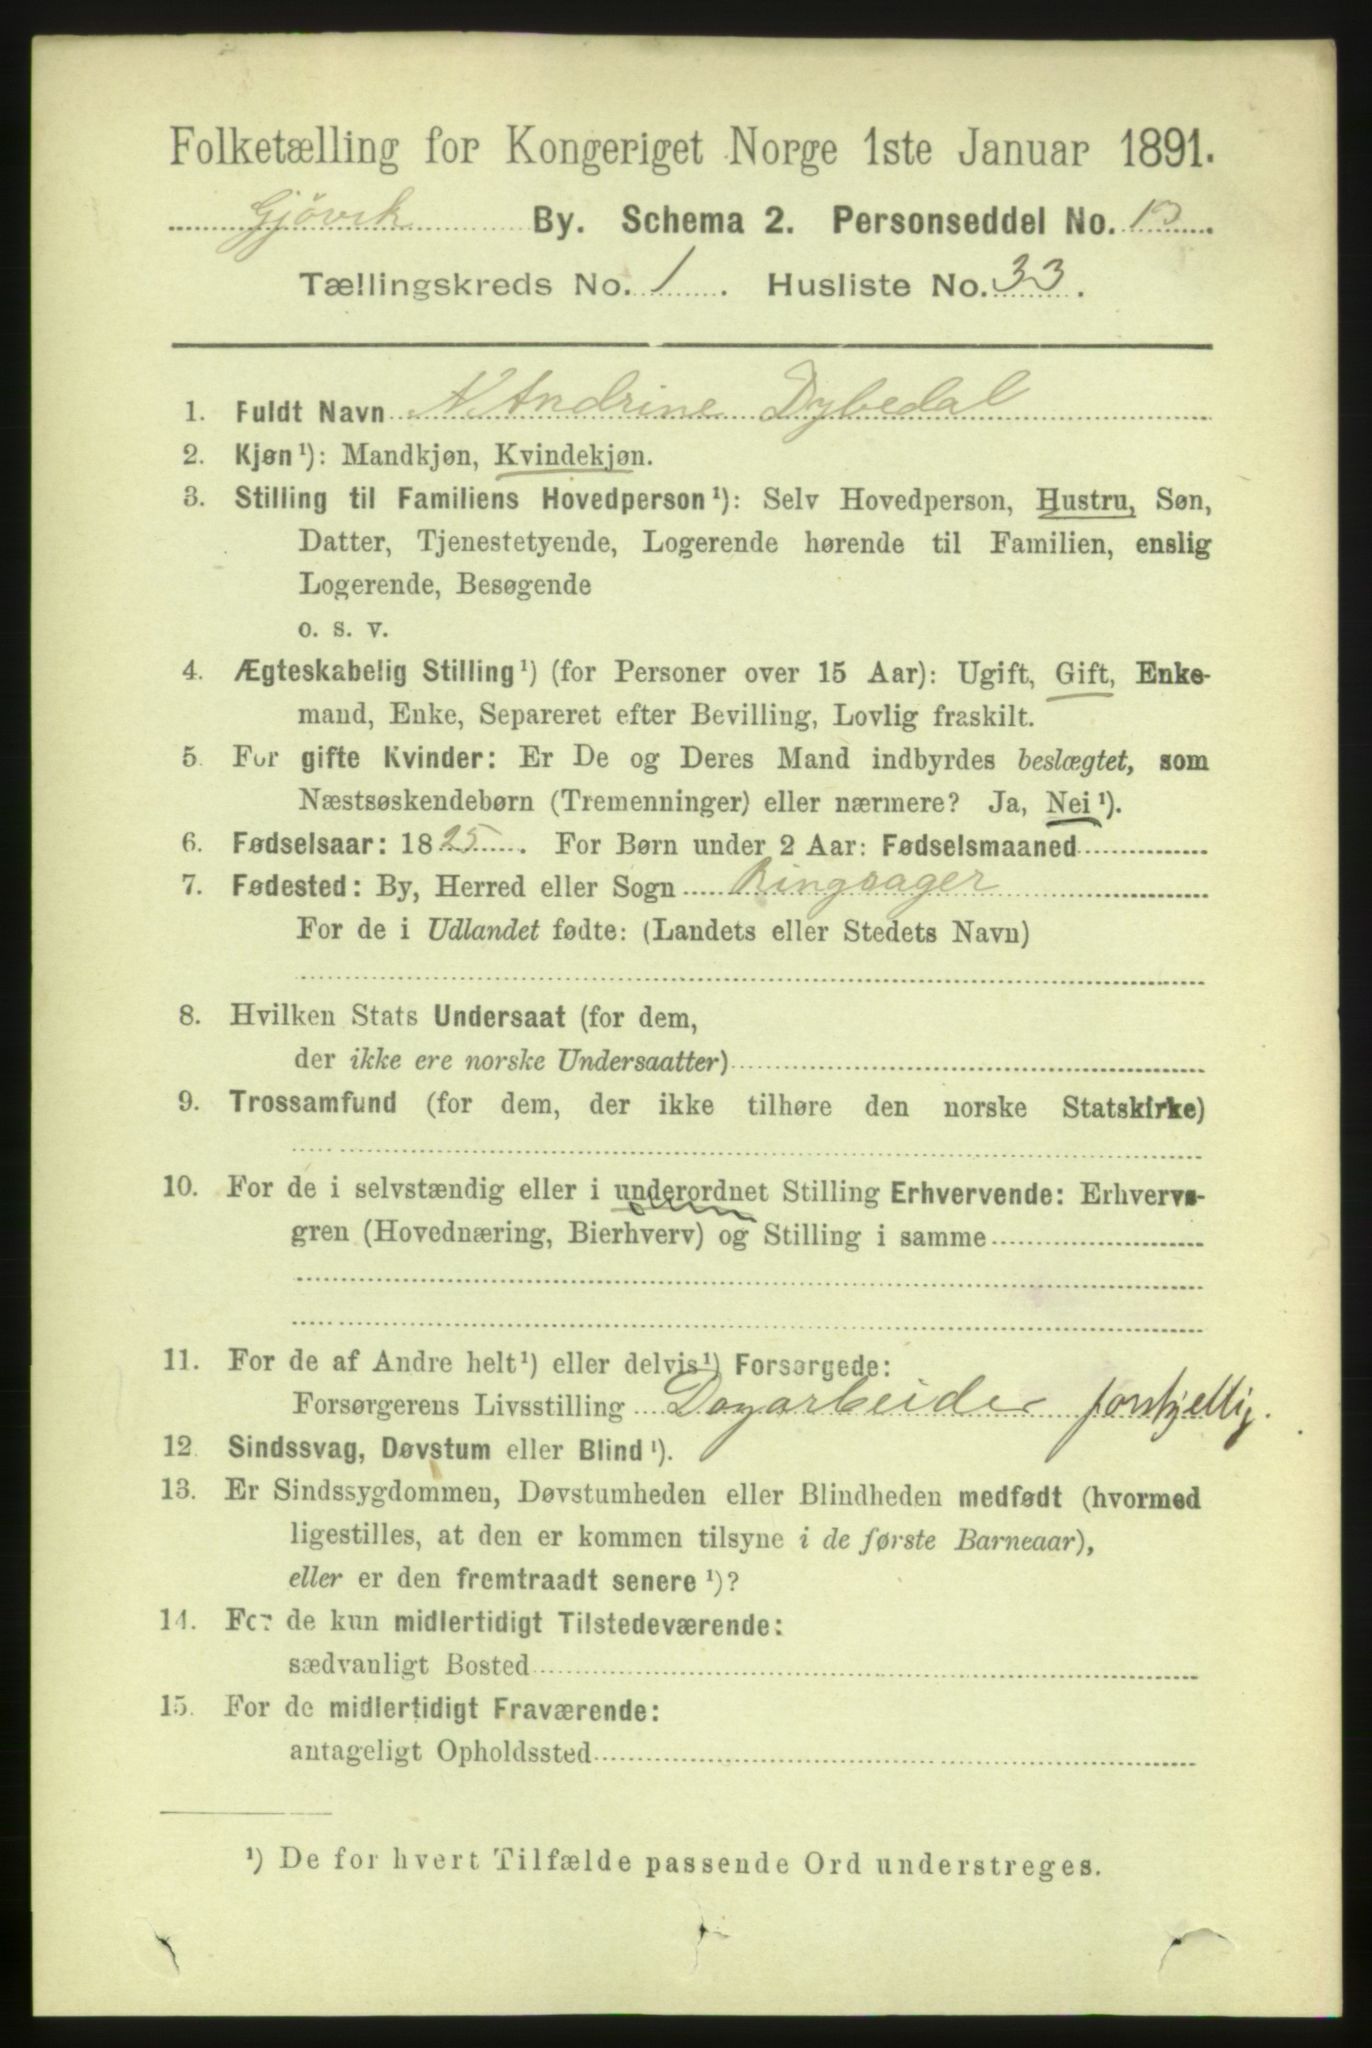 Folketælling for Kongeriget Norge 1ste Januar 1891.
Gjövik By. Schema 2. Personseddel No. 13.
Tællingskreds No. 1. Husliste No. 33.
1. Fuldt Navn N Andrine Dybedal
2. Kjøn¹): Mandkjøn, Kvindekjøn.
3. Stilling til Familiens Hovedperson¹): Selv Hovedperson, Hustru, Søn,
Datter, Tjenestetyende, Logerende hørende til Familien, enslig
Logerende, Besøgende
o. s. v.
4. Ægteskabelig Stilling¹) (for Personer over 15 Aar): Ugift, Gift, Enke-
mand, Enke, Separeret efter Bevilling, Lovlig fraskilt.
5. For gifte Kvinder: Er De og Deres Mand indbyrdes beslægtet, som
Næstsøskendebørn (Tremenninger) eller nærmere? Ja, Nei¹).
6. Fødselsaar: 1825. For Børn under 2 Aar: Fødselsmaaned
7. Fødested: By, Herred eller Sogn Ringsager
For de i Udlandet fødte: (Landets eller Stedets Navn)
8. Hvilken Stats Undersaat (for dem,
der ikke ere norske Undersaatter)
9. Trossamfund (for dem, der ikke tilhøre den norske Statskirke)
10. For de i selvstændig eller i underordnet Stilling Erhvervende: Erhvervs-
gren (Hovednæring, Bierhverv) og Stilling i samme
11. For de af Andre helt¹) eller delvis¹) Forsørgede:
Forsørgerens Livsstilling Dagarbeider forskjellig.
12 Sindssvag, Døvstum eller Blind¹).
13. Er Sindssygdommen, Døvstumheden eller Blindheden medfødt (hvormed
ligestilles, at den er kommen tilsyne i de første Barneaar),
eller er den fremtraadt senere¹)?
14. For de kun midlertidigt Tilstedeværende:
sædvanligt Bosted
15. For de midlertidigt Fraværende:
antageligt Opholdssted
¹) De for hvert Tilfælde passende Ord understreges.